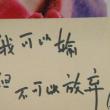 我可以输
但不可以放弃